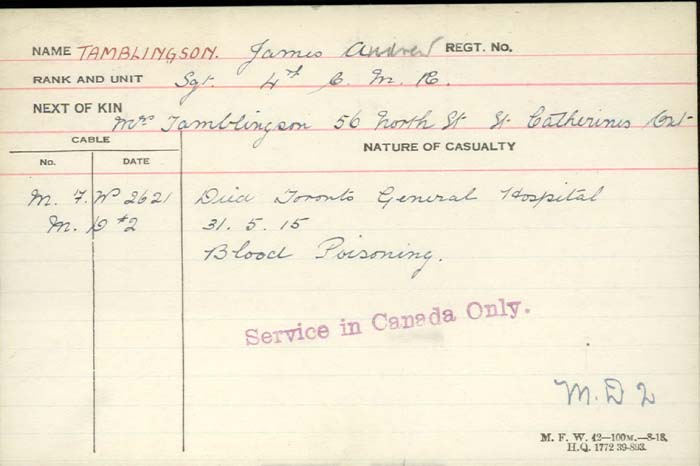 NAME TAMBLINGSON. James Andrew REGT. No.
RANK AND UNIT Sgt. 4th C. M. R.
NEXT OF KIN
Mrs Tamblingson 56 North St St Catherines Ont
CABLE
NATURE OF CASUALTY
No. DATE
M. F. W 2621 Died Toronto General Hospital
M. D #2 31. 5. 15
Blood Poisoning.
Service in Canada Only.
M. D 2
M. F. W. 42—100M.—8-18.
H.Q. 1772 39-893.